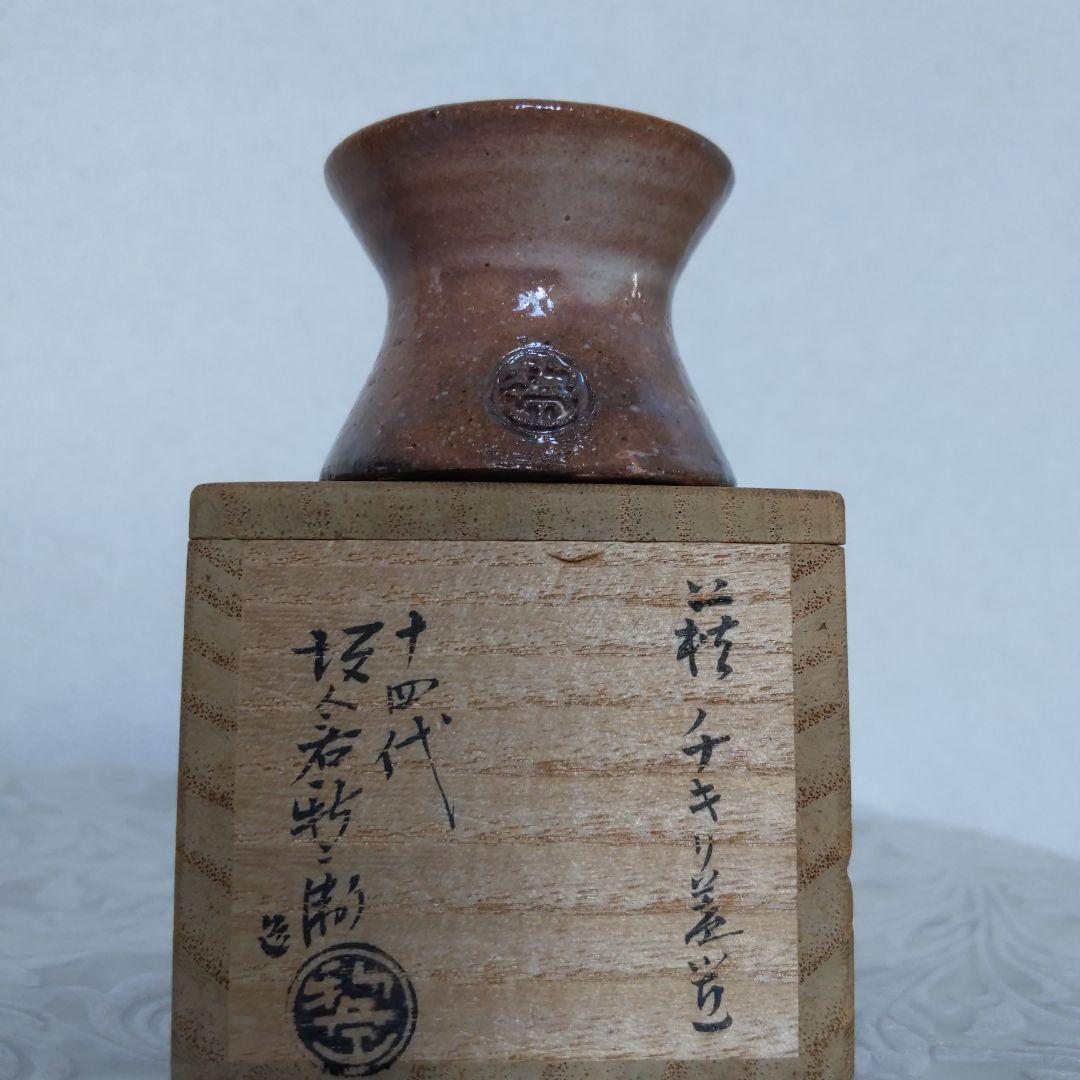 萩 チキリ蓋置
十四代
坂倉新兵衛
造